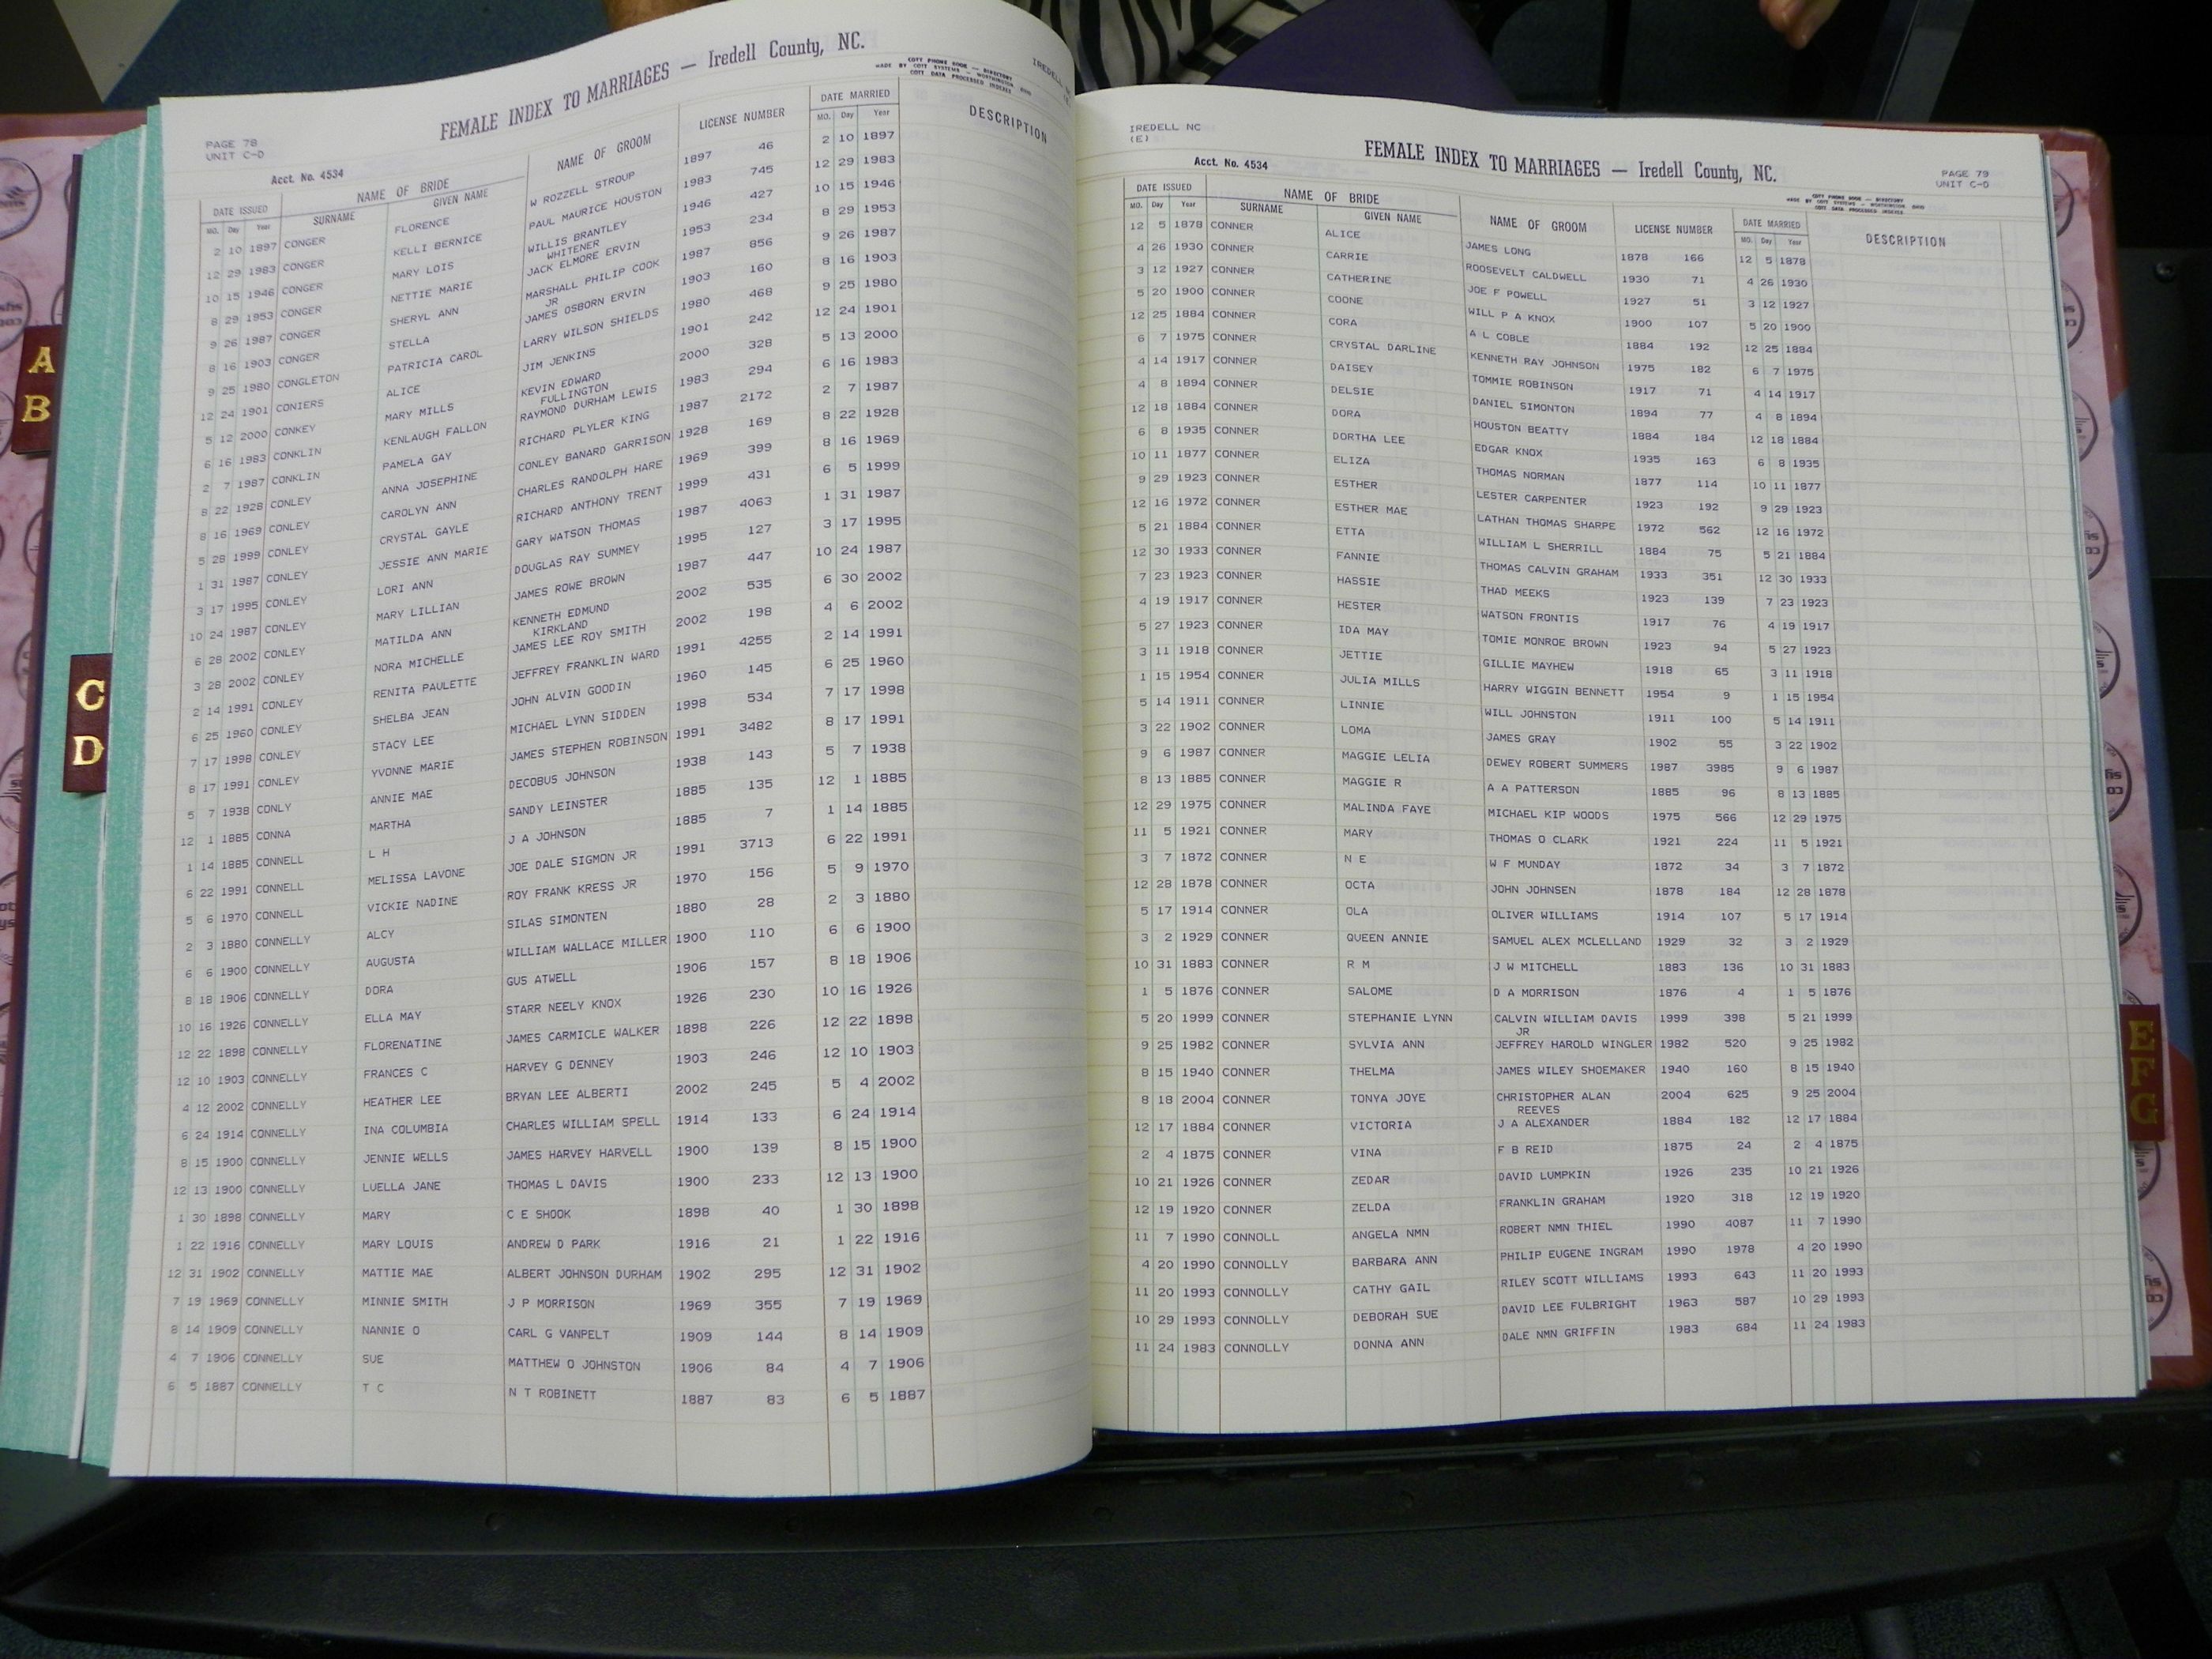 FEMALE INDEX TO MARRIAGES — Iredell County, NC.
COTT PHONE BOOK — DIRECTORY
MADE BY COTT SYSTEMS — WORTHINGTON OHIO
COTT DATA PROCESSED INDEXES
PAGE 78
UNIT C-D
Acct. No. 4534
DATE ISSUED NAME OF BRIDE NAME OF GROOM LICENSE NUMBER DATE MARRIED DESCRIPTION
MO. Day Year SURNAME GIVEN NAME MO. Day Year
2 10 1897 CONGER FLORENCE W ROZZELL STROUP 1897 46 2 10 1897
12 29 1983 CONGER KELLI BERNICE PAUL MAURICE HOUSTON 1983 745 12 29 1983
10 15 1946 CONGER MARY LOIS WILLIS BRANTLEY 1946 427 10 15 1946
WHITENER
8 29 1953 CONGER NETTIE MARIE JACK ELMORE ERVIN 1953 234 8 29 1953
9 26 1987 CONGER SHERYL ANN MARSHALL PHILIP COOK 1987 856 9 26 1987
JR
8 16 1903 CONGER STELLA JAMES OSBORN ERVIN 1903 160 8 16 1903
9 25 1980 CONGLETON PATRICIA CAROL LARRY WILSON SHIELDS 1980 468 9 25 1980
12 24 1901 CONIERS ALICE JIM JENKINS 1901 242 12 24 1901
5 12 2000 CONKEY MARY MILLS KEVIN EDWARD 2000 328 5 13 2000
FULLINGTON
6 16 1983 CONKLIN KENLAUGH FALLON RAYMOND DURHAM LEWIS 1983 294 6 16 1983
2 7 1987 CONKLIN PAMELA GAY RICHARD PLYLER KING 1987 2172 2 7 1987
8 22 1928 CONLEY ANNA JOSEPHINE CONLEY BANARD GARRISON 1928 169 8 22 1928
8 16 1969 CONLEY CAROLYN ANN CHARLES RANDOLPH HARE 1969 399 8 16 1969
5 28 1999 CONLEY CRYSTAL GAYLE RICHARD ANTHONY TRENT 1999 431 6 5 1999
1 31 1987 CONLEY JESSIE ANN MARIE GARY WATSON THOMAS 1987 4063 1 31 1987
3 17 1995 CONLEY LORI ANN DOUGLAS RAY SUMMEY 1995 127 3 17 1995
10 24 1987 CONLEY MARY LILLIAN JAMES ROWE BROWN 1987 447 10 24 1987
6 28 2002 CONLEY MATILDA ANN KENNETH EDMUND 2002 535 6 30 2002
KIRKLAND
3 28 2002 CONLEY NORA MICHELLE JAMES LEE ROY SMITH 2002 198 4 6 2002
2 14 1991 CONLEY RENITA PAULETTE JEFFREY FRANKLIN WARD 1991 4255 2 14 1991
6 25 1960 CONLEY SHELBA JEAN JOHN ALVIN GOODIN 1960 145 6 25 1960
7 17 1998 CONLEY STACY LEE MICHAEL LYNN SIDDEN 1998 534 7 17 1998
8 17 1991 CONLEY YVONNE MARIE JAMES STEPHEN ROBINSON 1991 3482 8 17 1991
5 7 1938 CONLY ANNIE MAE DECOBUS JOHNSON 1938 143 5 7 1938
12 1 1885 CONNA MARTHA SANDY LEINSTER 1885 135 12 1 1885
1 14 1885 CONNELL L H J A JOHNSON 1885 7 1 14 1885
6 22 1991 CONNELL MELISSA LAVONE JOE DALE SIGMON JR 1991 3713 6 22 1991
5 6 1970 CONNELL VICKIE NADINE ROY FRANK KRESS JR 1970 156 5 9 1970
2 3 1880 CONNELLY ALCY SILAS SIMONTEN 1880 28 2 3 1880
6 6 1900 CONNELLY AUGUSTA WILLIAM WALLACE MILLER 1900 110 6 6 1900
8 18 1906 CONNELLY DORA GUS ATWELL 1906 157 8 18 1906
10 16 1926 CONNELLY ELLA MAY STARR NEELY KNOX 1926 230 10 16 1926
12 22 1898 CONNELLY FLORENATINE JAMES CARMICLE WALKER 1898 226 12 22 1898
12 10 1903 CONNELLY FRANCES C HARVEY G DENNEY 1903 246 12 10 1903
4 12 2002 CONNELLY HEATHER LEE BRYAN LEE ALBERTI 2002 245 5 4 2002
6 24 1914 CONNELLY INA COLUMBIA CHARLES WILLIAM SPELL 1914 133 6 24 1914
8 15 1900 CONNELLY JENNIE WELLS JAMES HARVEY HARVELL 1900 139 8 15 1900
12 13 1900 CONNELLY LUELLA JANE THOMAS L DAVIS 1900 233 12 13 1900
1 30 1898 CONNELLY MARY C E SHOOK 1898 40 1 30 1898
1 22 1916 CONNELLY MARY LOUIS ANDREW D PARK 1916 21 1 22 1916
12 31 1902 CONNELLY MATTIE MAE ALBERT JOHNSON DURHAM 1902 295 12 31 1902
7 19 1969 CONNELLY MINNIE SMITH J P MORRISON 1969 355 7 19 1969
8 14 1909 CONNELLY NANNIE O CARL G VANPELT 1909 144 8 14 1909
4 7 1906 CONNELLY SUE MATTHEW O JOHNSTON 1906 84 4 7 1906
6 5 1887 CONNELLY T C N T ROBINETT 1887 83 6 5 1887
IREDELL NC
(E)
FEMALE INDEX TO MARRIAGES — Iredell County, NC.
Acct. No. 4534
PAGE 79
UNIT C-D
COTT PHONE BOOK — DIRECTORY
MADE BY COTT SYSTEMS — WORTHINGTON OHIO
COTT DATA PROCESSED INDEXES
DATE ISSUED NAME OF BRIDE NAME OF GROOM LICENSE NUMBER DATE MARRIED DESCRIPTION
MO. Day Year SURNAME GIVEN NAME MO. Day Year
12 5 1878 CONNER ALICE JAMES LONG 1878 166 12 5 1878
4 26 1930 CONNER CARRIE ROOSEVELT CALDWELL 1930 71 4 26 1930
3 12 1927 CONNER CATHERINE JOE F POWELL 1927 51 3 12 1927
5 20 1900 CONNER COONE WILL P A KNOX 1900 107 5 20 1900
12 25 1884 CONNER CORA A L COBLE 1884 192 12 25 1884
6 7 1975 CONNER CRYSTAL DARLINE KENNETH RAY JOHNSON 1975 182 6 7 1975
4 14 1917 CONNER DAISEY TOMMIE ROBINSON 1917 71 4 14 1917
4 8 1894 CONNER DELSIE DANIEL SIMONTON 1894 77 4 8 1894
12 18 1884 CONNER DORA HOUSTON BEATTY 1884 184 12 18 1884
6 8 1935 CONNER DORTHA LEE EDGAR KNOX 1935 163 6 8 1935
10 11 1877 CONNER ELIZA THOMAS NORMAN 1877 114 10 11 1877
9 29 1923 CONNER ESTHER LESTER CARPENTER 1923 192 9 29 1923
12 16 1972 CONNER ESTHER MAE LATHAN THOMAS SHARPE 1972 562 12 16 1972
5 21 1884 CONNER ETTA WILLIAM L SHERRILL 1884 75 5 21 1884
12 30 1933 CONNER FANNIE THOMAS CALVIN GRAHAM 1933 351 12 30 1933
7 23 1923 CONNER HASSIE THAD MEEKS 1923 139 7 23 1923
4 19 1917 CONNER HESTER WATSON FRONTIS 1917 76 4 19 1917
5 27 1923 CONNER IDA MAY TOMIE MONROE BROWN 1923 94 5 27 1923
3 11 1918 CONNER JETTIE GILLIE MAYHEW 1918 65 3 11 1918
1 15 1954 CONNER JULIA MILLS HARRY WIGGIN BENNETT 1954 9 1 15 1954
5 14 1911 CONNER LINNIE WILL JOHNSTON 1911 100 5 14 1911
3 22 1902 CONNER LOMA JAMES GRAY 1902 55 3 22 1902
9 6 1987 CONNER MAGGIE LELIA DEWEY ROBERT SUMMERS 1987 3985 9 6 1987
8 13 1885 CONNER MAGGIE R A A PATTERSON 1885 96 8 13 1885
12 29 1975 CONNER MALINDA FAYE MICHAEL KIP WOODS 1975 566 12 29 1975
11 5 1921 CONNER MARY THOMAS O CLARK 1921 224 11 5 1921
3 7 1872 CONNER N E W F MUNDAY 1872 34 3 7 1872
12 28 1878 CONNER OCTA JOHN JOHNSEN 1878 184 12 28 1878
5 17 1914 CONNER OLA OLIVER WILLIAMS 1914 107 5 17 1914
3 2 1929 CONNER QUEEN ANNIE SAMUEL ALEX MCLELLAND 1929 32 3 2 1929
10 31 1883 CONNER R M J W MITCHELL 1883 136 10 31 1883
1 5 1876 CONNER SALOME D A MORRISON 1876 4 1 5 1876
5 20 1999 CONNER STEPHANIE LYNN CALVIN WILLIAM DAVIS 1999 398 5 21 1999
JR
9 25 1982 CONNER SYLVIA ANN JEFFREY HAROLD WINGLER 1982 520 9 25 1982
8 15 1940 CONNER THELMA JAMES WILEY SHOEMAKER 1940 160 8 15 1940
8 18 2004 CONNER TONYA JOYE CHRISTOPHER ALAN 2004 625 9 25 2004
REEVES
12 17 1884 CONNER VICTORIA J A ALEXANDER 1884 182 12 17 1884
2 4 1875 CONNER VINA F B REID 1875 24 2 4 1875
10 21 1926 CONNER ZEDAR DAVID LUMPKIN 1926 235 10 21 1926
12 19 1920 CONNER ZELDA FRANKLIN GRAHAM 1920 318 12 19 1920
11 7 1990 CONNOLL ANGELA NMN ROBERT NMN THIEL 1990 4087 11 7 1990
4 20 1990 CONNOLLY BARBARA ANN PHILIP EUGENE INGRAM 1990 1978 4 20 1990
11 20 1993 CONNOLLY CATHY GAIL RILEY SCOTT WILLIAMS 1993 643 11 20 1993
10 29 1993 CONNOLLY DEBORAH SUE DAVID LEE FULBRIGHT 1963 587 10 29 1993
11 24 1983 CONNOLLY DONNA ANN DALE NMN GRIFFIN 1983 684 11 24 1983
A
B
C
D
E
F
G